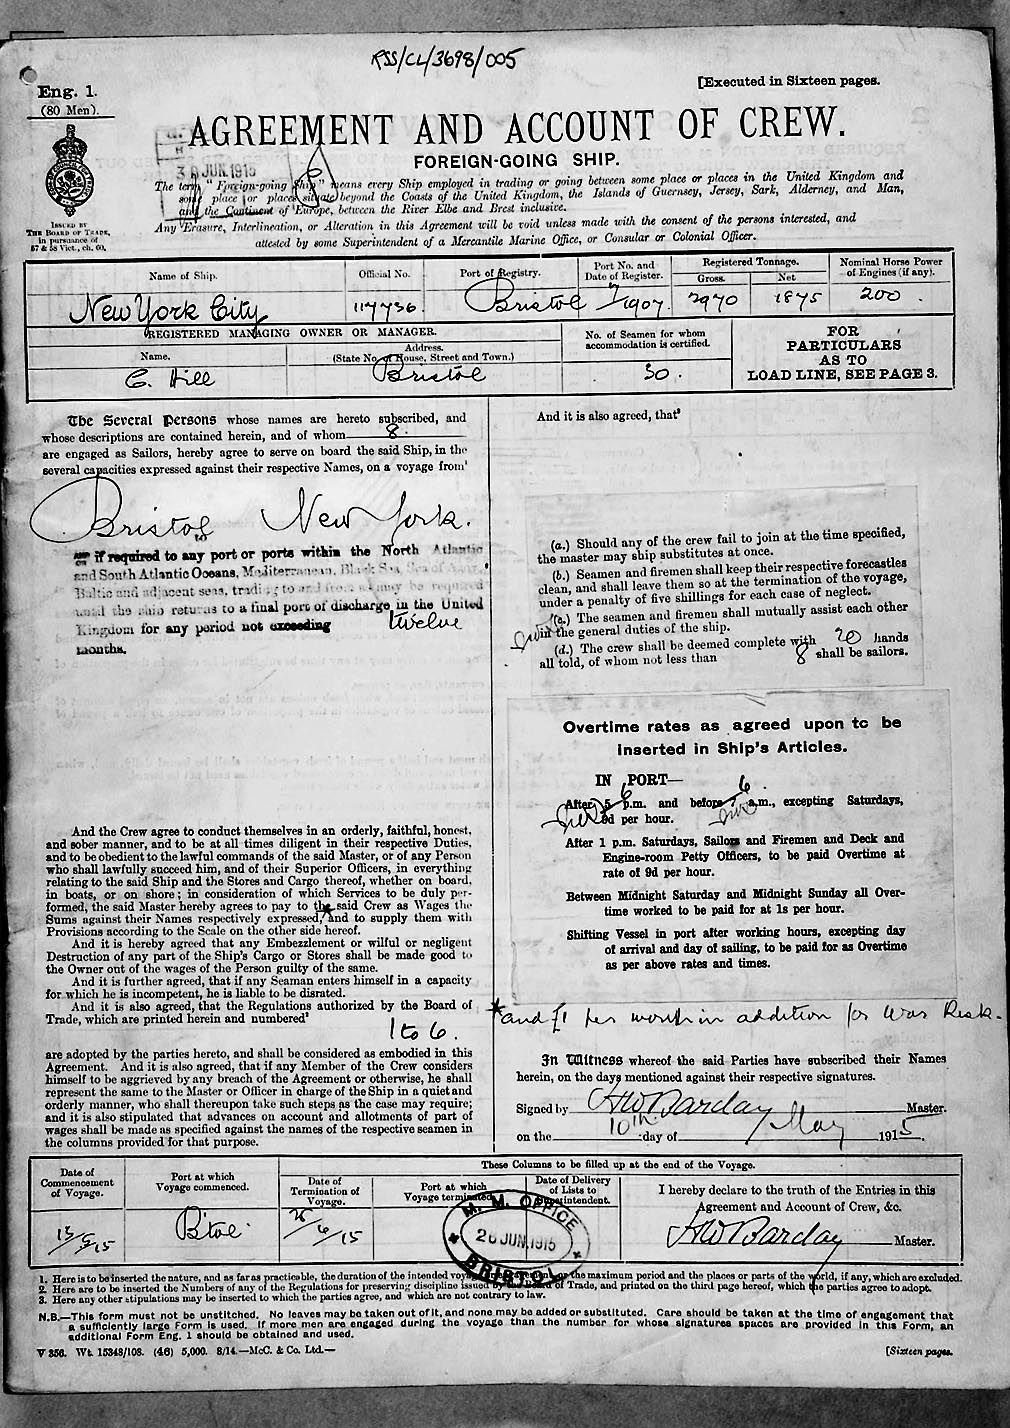 RSS/CL/3698/005
[Executed in Sixteen pages.
Eng. 1.
(80 Men).
AGREEMENT AND ACCOUNT OF CREW.
FOREIGN-GOING SHIP.
JUN.1915
The term "Foreign-going Ship" means every Ship employed in trading or going between some place or places in the United Kingdom and
some place or places situate beyond the Coasts of the United Kingdom, the Islands of Guernsey, Jersey, Sark, Alderney, and Man,
and the Continent of Europe, between the River Elbe and Brest inclusive.
Any Erasure, Interlineation, or Alteration in this Agreement will be void unless made with the consent of the persons interested, and
attested by some Superintendent of a Mercantile Marine Office, or Consular or Colonial Officer.
ISSUED BY
THE BOARD OF TRADE,
in pursuance of
57 & 58 Vict., ch. 60.
Name of Ship. Official No. Port of Registry. Port No. and Date of Register. Registered Tonnage. Gross. Net Nominal Horse Power of Engines (if any).
New York City 117736. Bristol 7/1907. 2970 1875 200.
REGISTERED MANAGING OWNER OR MANAGER.
Name. Address. (State No. of House, Street and Town.) No. of Seamen for whom accommodation is certified.
C. Hill Bristol 30.
FOR
PARTICULARS
AS TO
LOAD LINE, SEE PAGE 3.
The Several Persons whose names are hereto subscribed, and
whose descriptions are contained herein, and of whom 8
are engaged as Sailors, hereby agree to serve on board the said Ship, in the
several capacities expressed against their respective Names, on a voyage from¹
Bristol to New York.
if required to any port or ports within the North Atlantic
and South Atlantic Oceans, Mediterranean, Black Sea, Sea of Azov,
Baltic and adjacent seas, trading to and from as may be required
until the ship returns to a final port of discharge in the United
Kingdom for any period not exceeding twelve
months.
And the Crew agree to conduct themselves in an orderly, faithful, honest,
and sober manner, and to be at all times diligent in their respective Duties,
and to be obedient to the lawful commands of the said Master, or of any Person
who shall lawfully succeed him, and of their Superior Officers, in everything
relating to the said Ship and the Stores and Cargo thereof, whether on board,
in boats, or on shore; in consideration of which Services to be duly per-
formed, the said Master hereby agrees to pay to the said Crew as Wages the
Sums against their Names respectively expressed, * and to supply them with
Provisions according to the Scale on the other side hereof.
And it is hereby agreed that any Embezzlement or wilful or negligent
Destruction of any part of the Ship's Cargo or Stores shall be made good to
the Owner out of the wages of the Person guilty of the same.
And it is further agreed, that if any Seaman enters himself in a capacity
for which he is incompetent, he is liable to be disrated.
And it is also agreed, that the Regulations authorized by the Board of
Trade, which are printed herein and numbered²
1 to 6.
are adopted by the parties hereto, and shall be considered as embodied in this
Agreement. And it is also agreed, that if any Member of the Crew considers
himself to be aggrieved by any breach of the Agreement or otherwise, he shall
represent the same to the Master or Officer in charge of the Ship in a quiet and
orderly manner, who shall thereupon take such steps as the case may require;
and it is also stipulated that advances on account and allotments of part of
wages shall be made as specified against the names of the respective seamen in
the columns provided for that purpose.
And it is also agreed, that³
(a.) Should any of the crew fail to join at the time specified,
the master may ship substitutes at once.
(b.) Seamen and firemen shall keep their respective forecastles
clean, and shall leave them so at the termination of the voyage,
under a penalty of five shillings for each case of neglect.
(c.) The seamen and firemen shall mutually assist each other
in the general duties of the ship.
(d.) The crew shall be deemed complete with 20 hands
all told, of whom not less than 8 shall be sailors.
Overtime rates as agreed upon to be
inserted in Ship's Articles.
IN PORT—
After 5 6 p.m. and before 7 6 a.m., excepting Saturdays,
9d per hour.
After 1 p.m. Saturdays, Sailors and Firemen and Deck and
Engine-room Petty Officers, to be paid Overtime at
rate of 9d per hour.
Between Midnight Saturday and Midnight Sunday all Over-
time worked to be paid for at 1s per hour.
Shifting Vessel in port after working hours, excepting day
of arrival and day of sailing, to be paid for as Overtime
as per above rates and times.
* and £1 per month in addition for War Risk.
In Witness whereof the said Parties have subscribed their Names
herein, on the days mentioned against their respective signatures.
Signed by HW Barclay Master.
on the 10th day of May 1915.
These Columns to be filled up at the end of the Voyage.
Date of Commencement of Voyage. Port at which Voyage commenced. Date of Termination of Voyage. Port at which Voyage terminated. Date of Delivery of Lists to Superintendent.
13/5/15 B'tol 25/6/15
M. M. OFFICE
26 JUN.1915
BRISTOL
I hereby declare to the truth of the Entries in this
Agreement and Account of Crew, &c.
HW Barclay Master.
1. Here is to be inserted the nature, and as far as practicable, the duration of the intended voyage or engagement, or the maximum period and the places or parts of the world, if any, which are excluded.
2. Here are to be inserted the Numbers of any of the Regulations for preserving discipline issued by the Board of Trade, and printed on the third page hereof, which the parties agree to adopt.
3. Here any other stipulations may be inserted to which the parties agree, and which are not contrary to law.
N.B.—This form must not be unstitched. No leaves may be taken out of it, and none may be added or substituted. Care should be taken at the time of engagement that
a sufficiently large Form is used. If more men are engaged during the voyage than the number for whose signatures spaces are provided in this Form, an
additional Form Eng. 1 should be obtained and used.
V 356. Wt. 15348/108. (46) 5,000. 8/14.—McC. & Co. Ltd.—
[Sixteen pages.